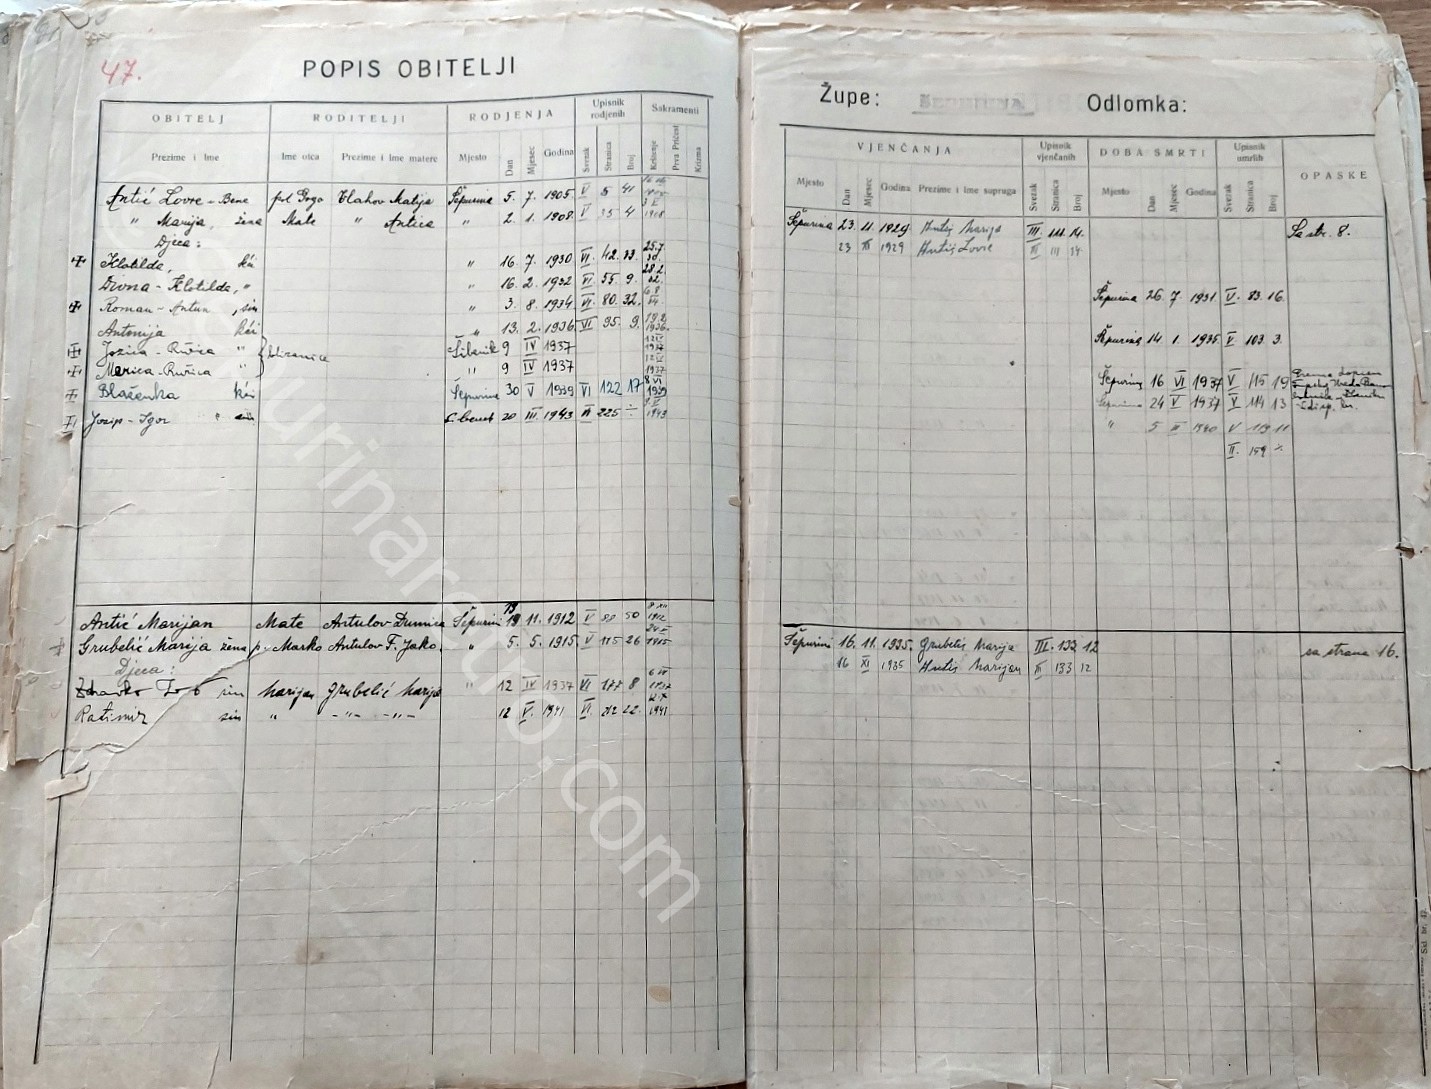 47.
POPIS OBITELJI
OBITELJ RODITELJI RODJENJA Upisnik rodjenih Sakramenti
Prezime i Ime Ime otca Prezime i Ime matere Mjesto Dan Mjesec Godina Svezak Stranica Broj Krštenje Prva Pričest Krizma
Antić Lovre - Bene pok Grgo Vlahov Matija Šepurina 5. 7. 1905 V 5 41
" Marija, žena Mate " Antica " 2. 1. 1908. V 35 4 1908
Djeca:
Klotilda, kći " 16. 7. 1930 VI 42. 33. 25.7. 30.
Divna - Klotilda, " " 16. 2. 1932 VI. 55. 9. 28.2. 32.
Roman - Antun, sin " 3. 8. 1934 VI. 80. 32.
Antonija kći " 13. 2. 1936 VI 95. 9. 1936.
Jozica - Ružica " blizanice Šibenik 9 IV 1937 1937
Marica - Ružica " " 9 IV 1937 1937
Blaženka kći Šepurina 30 V 1939 VI 122 17 8 VI 1939
Josip - Igor " sin 20 III 1943 VI 225 ÷ 1943
Antić Marijan Mate Antulov Dumica Šepurini 19 11. 1912 V 50 8 XII 1912
Grubelić Marija žena p. Marko Antulov F. Jako. " 5. 5. 1915 V 115 26 1915
Djeca:
Zdravko sin Marijan Grubelić Marija " 12 IV 1937 VI 177 8 1937
Ratimir sin " -"- -"- 12 V. 1941 VI. 212 22. 1941
Župe: ŠEPURINA Odlomka:
VJENČANJA Upisnik vjenčanih DOBA SMRTI Upisnik umrlih OPASKE
Mjesto Dan Mjesec Godina Prezime i Ime supruga Svezak Stranica Broj Mjesto Dan Mjesec Godina Svezak Stranica Broj
Šepurina 23. 11. 1929 Antić Marija III. 111 14. Sa str. 8.
23 XI 1929 Antić Lovre III 111 14
Šepurina 26. 7. 1931. V. 83. 16.
Šepurina 14 1. 1935. V 103 3.
Šepurini 16 VI 1937 V 115 19
24 V 1937 V 114 13
" 5 II 1940 V 119 11
II. 159
Šepurini 16. 11. 1935. Grubelić Marija III. 132 12 sa strana 16.
16 XI 1935 Antić Marijan III 133 12
sepurinaretro.com